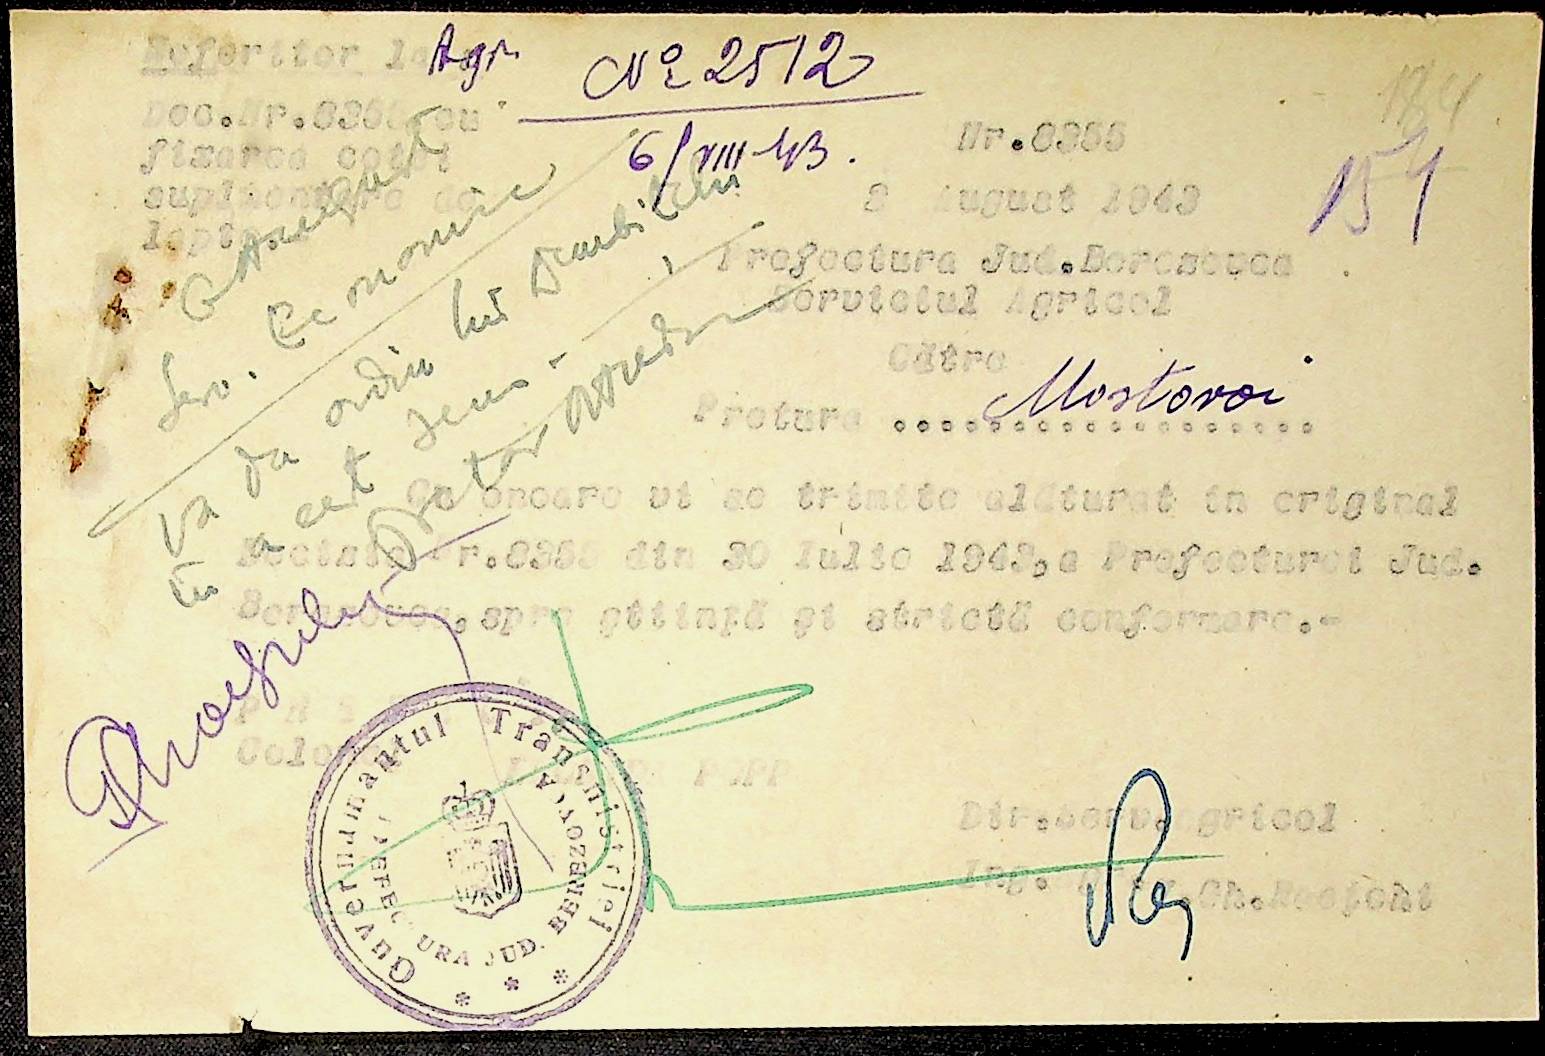 Referitor la Agr. № 2512
Dec.Nr.8355 cu
fixarea cotei
suplimentare de
lapte
6/VIII 43.
Nr.8355
3 August 1943
184
151
Prefectura Jud.Berezovca
Serviciul Agricol
Către
Pretura Mostovoi
Serv. Economic
va da ordin lui
în acest sens.
Cu onoare vi se trimite alăturat în original
Decizia Nr.8355 din 30 Iulie 1943,a Prefecturei Jud.
Berezovca,spre ştiinţă şi strictă conformare.-
P R E F E C T
Colonel
POPP
Dir.serv.agricol
Ing.
Gh.
Guvernământul Transnistriei
PREFECTURA JUD. BEREZOVCA